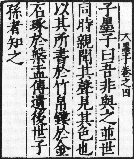 墨子卷之四
子墨子曰吾非與之並世
同時親聞其聲見其色也
以其所書於竹帛鏤於金
石琢於槃盂傳遺後世子
孫者知之